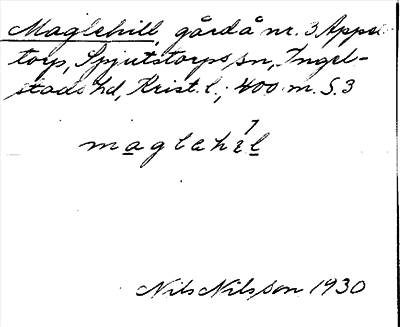 Maglehill, gård å nr. 3 Appel-
torp, Spjutstorps sn, Ingel-
stads hd, Krist. l., 400 m. S. 3
Nils Nilsson 1930